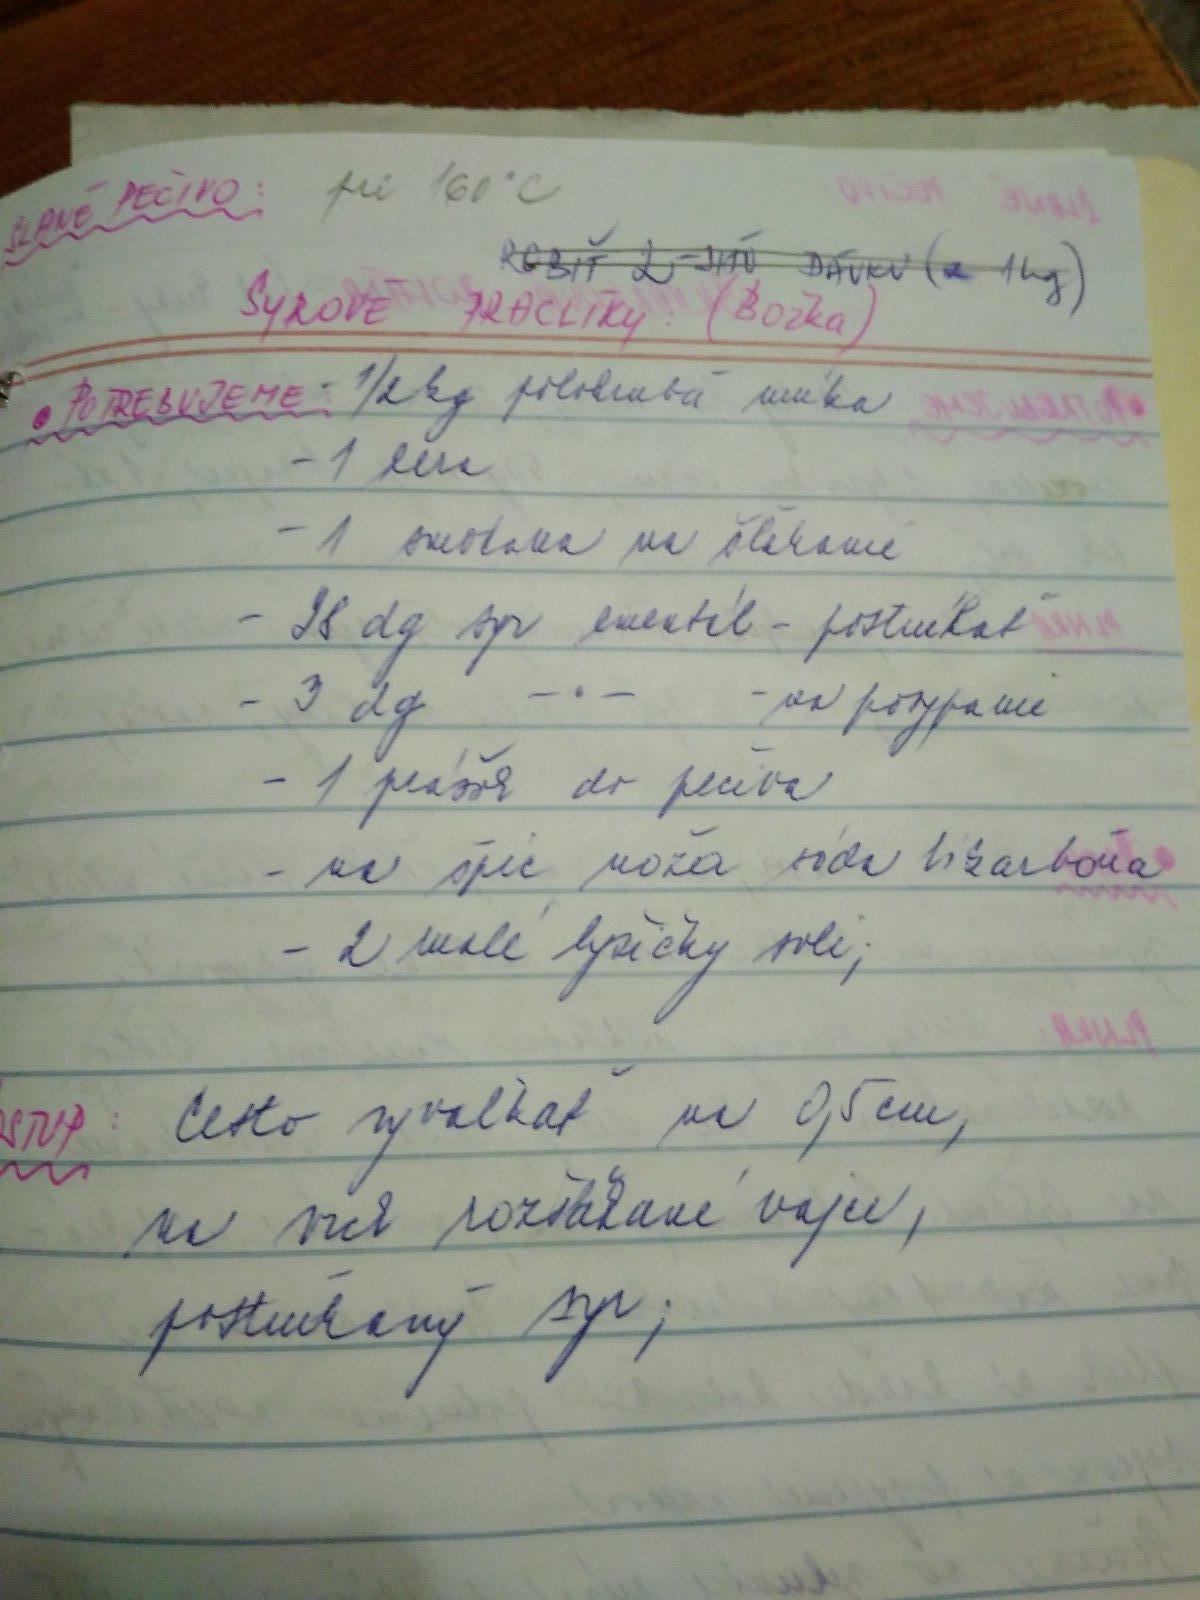 SLANÉ PEČIVO: pri 160°C
ROBIŤ 2-JITÚ DÁVKU (z 1kg)
SYROVÉ PRACLÍKY: (Božka)
• POTREBUJEME: 1/2 kg polohrubá múka
- 1 hera
- 1 smotana na šľahanie
- 28 dg syr ementál - postrúhať
- 3 dg -·- - na posypanie
- 1 prášok do pečiva
- na špic noža sóda bikarbóna
- 2 malé lyžičky soli;
POSTUP: Cesto vyvalkať na 0,5 cm,
na vrch rozšľahané vajce,
postrúhaný syr;